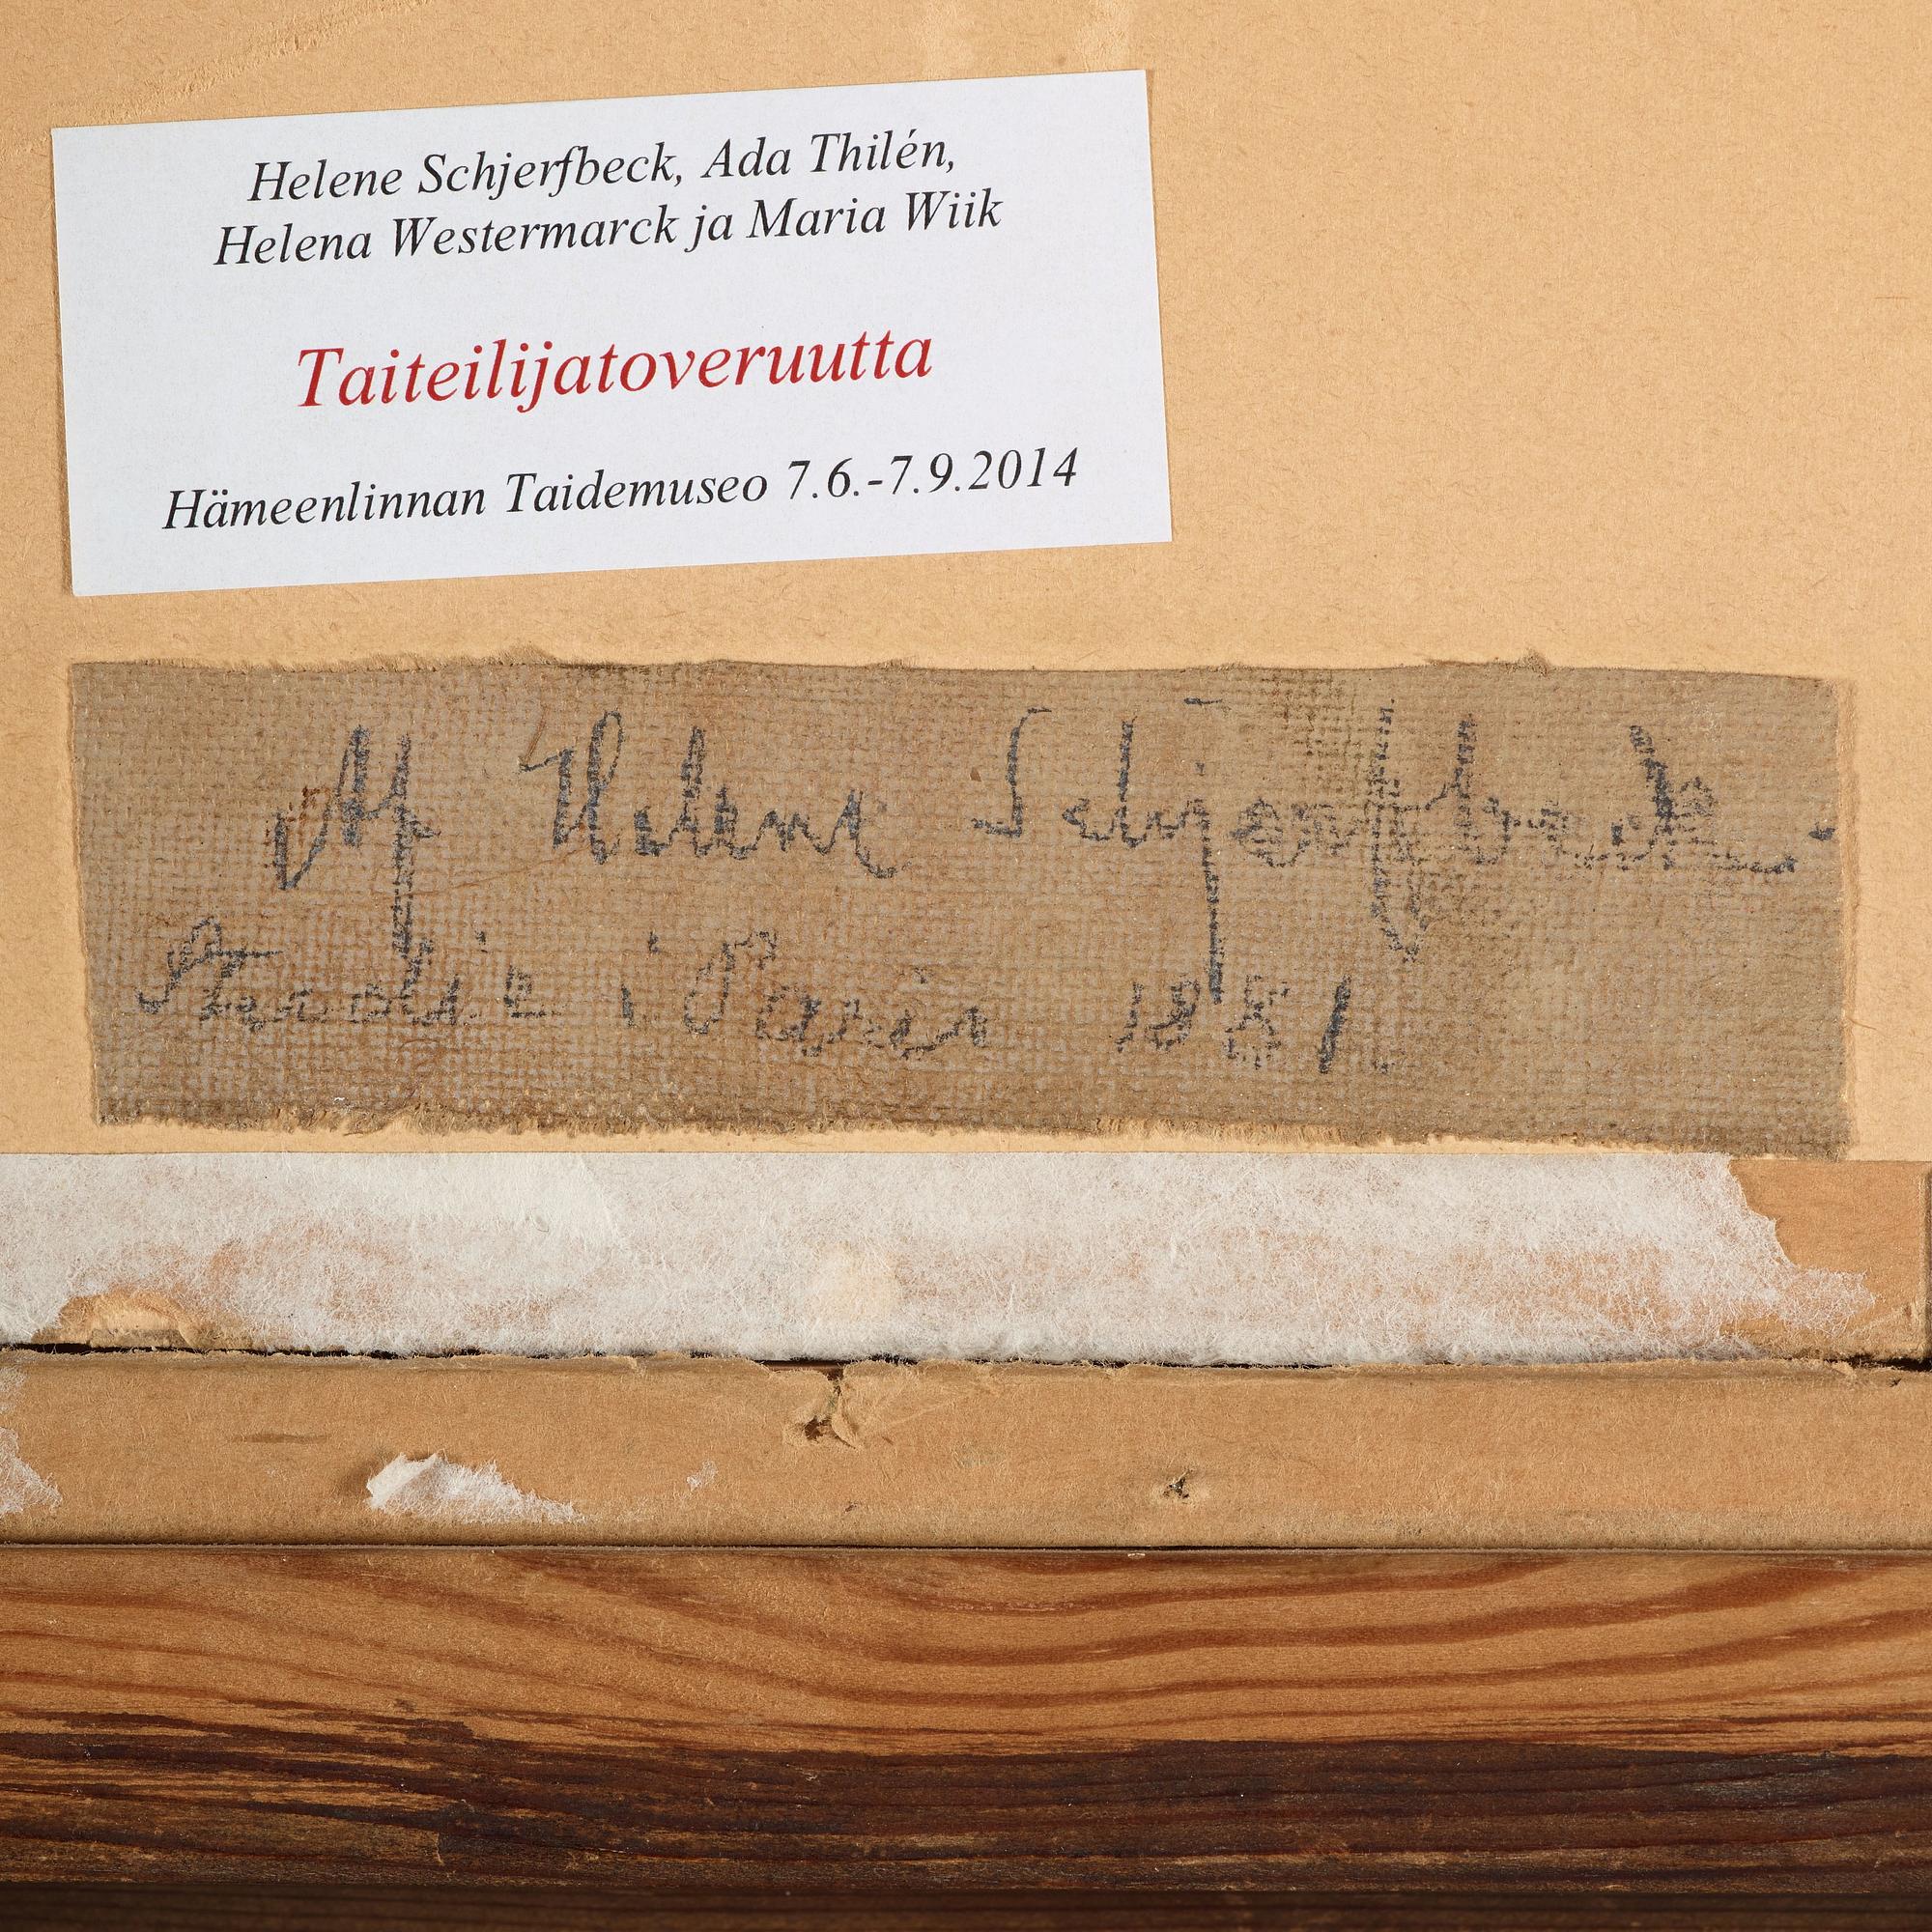 Helene Schjerfbeck, Ada Thilén,
Helena Westermarck ja Maria Wiik
Taiteilijatoveruutta
Hämeenlinnan Taidemuseo 7.6.-7.9.2014
Af Helene Schjerfbeck.
i Paris 1881